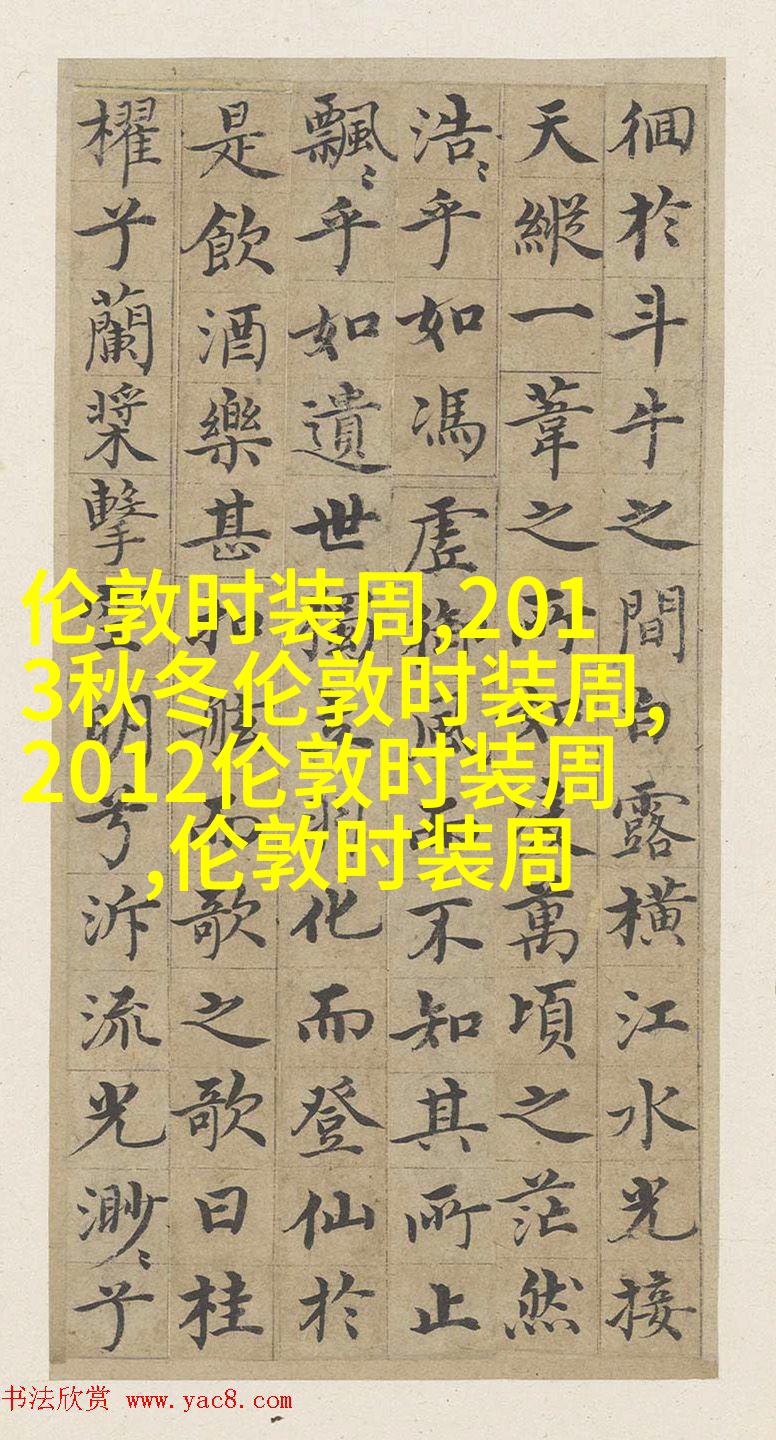 徊於斗牛之間白露橫江水光接
天縱一葦之所如凌萬頃之茫然
浩〻乎如馮虛御風而不知其所止
飄〻乎如遺世獨立羽化而登仙於
是飲酒樂甚扣舷而歌之歌曰桂
櫂兮蘭槳擊空明兮泝流光渺〻兮
伦敦时装周,201
3秋冬伦敦时装周,
2012伦敦时装周
,伦敦时装周
书法欣赏 www.yac8.com